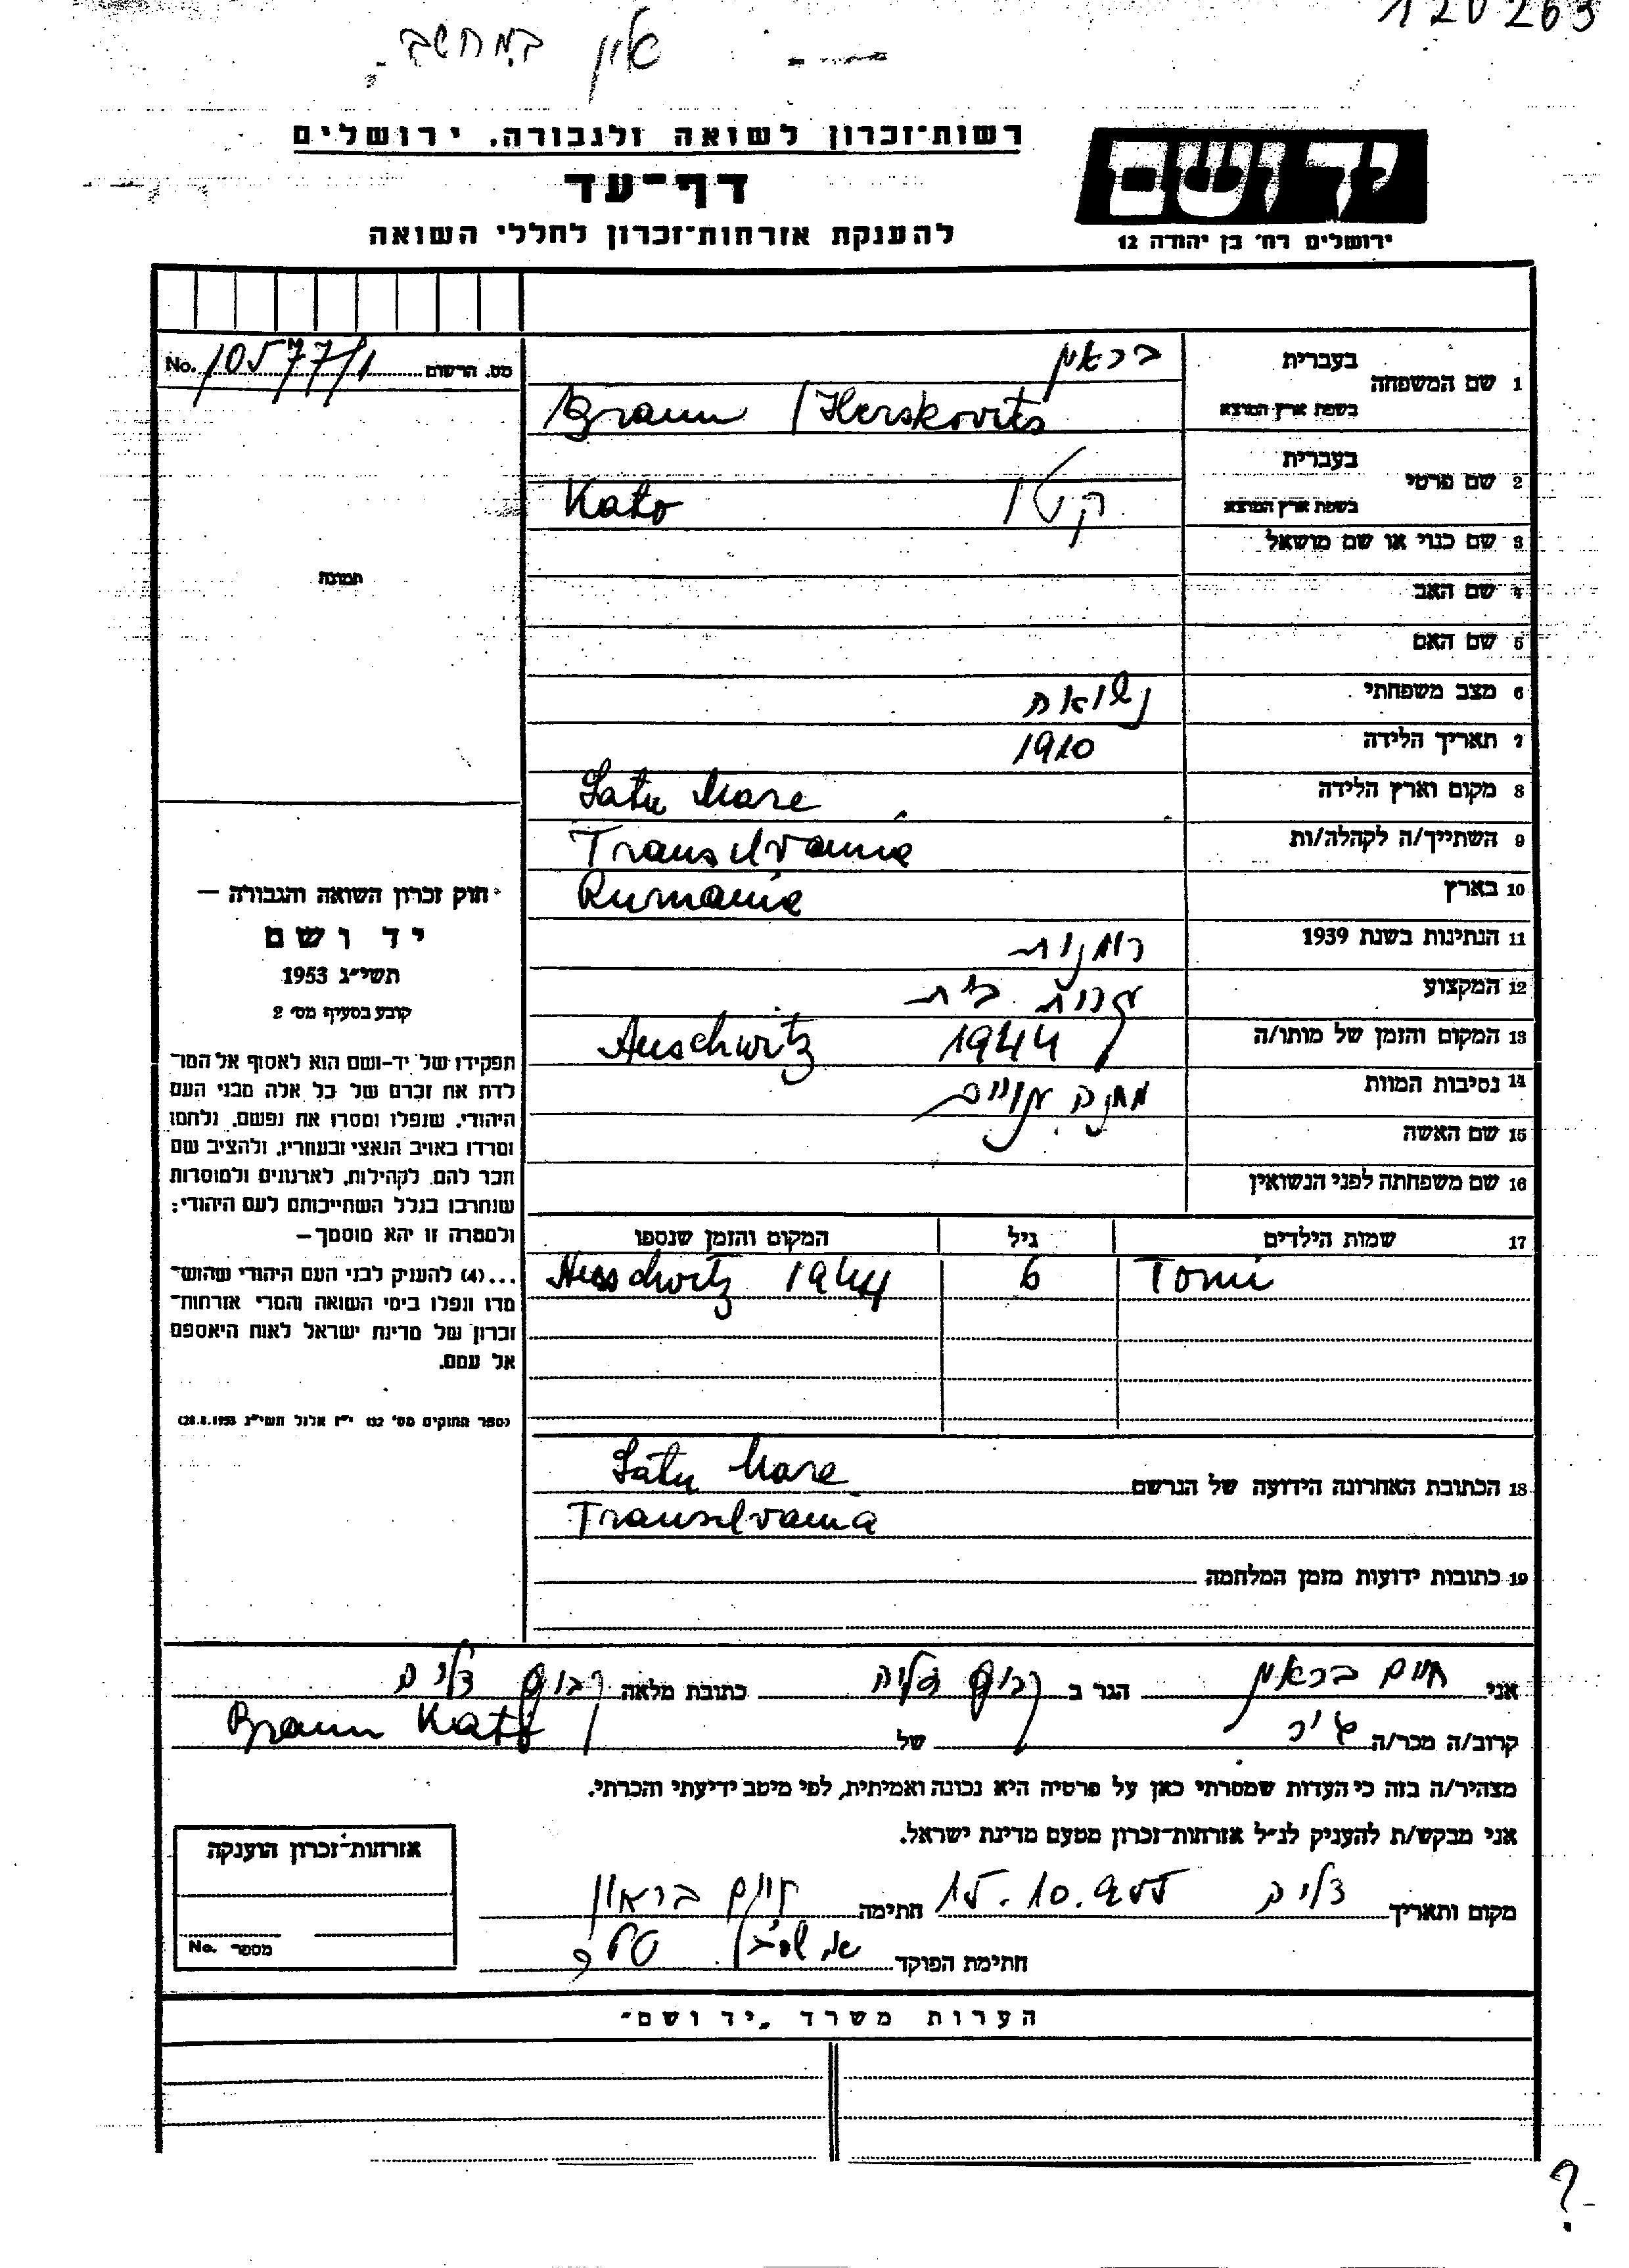 120263
אין במחשב
רשות־זכרון לשואה ולגבורה, ירושלים
דף־עד
להענקת אזרחות־זכרון לחללי השואה
יד ושם
ירושלים רח׳ בן יהודה 12
No. 10577/1 מס. הרשום
1 שם המשפחה בעברית בראון
בשפת ארץ המוצא Braun / Herskovits
2 שם פרטי בעברית קטו
בשפת ארץ המוצא Kato
3 שם כנוי או שם מושאל
4 שם האב
5 שם האם
6 מצב משפחתי נשואה
7 תאריך הלידה 1910
8 מקום וארץ הלידה Satu Mare
9 השתייך/ה לקהלה/ות Transilvania
10 בארץ Rumania
11 הנתינות בשנת 1939 רומנית
12 המקצוע עקרת בית
13 המקום והזמן של מותו/ה 1944 Auschwitz
14 נסיבות המוות מחנה
15 שם האשה
16 שם משפחתה לפני הנשואין
17 שמות הילדים גיל המקום והזמן שנספו
Tomi 6 Auschwitz 1944
18 הכתובת האחרונה הידועה של הנרשם Satu Mare
Transilvania
19 כתובות ידועות מזמן המלחמה
תמונה
חוק זכרון השואה והגבורה —
יד ושם
תשי״ג 1953
קובע בסעיף מס׳ 2
תפקידו של יד־ושם הוא לאסוף אל המו־
לדת את זכרם של כל אלה מבני העם
היהודי, שנפלו ומסרו את נפשם, נלחמו
ומרדו באויב הנאצי ובעוזריו, ולהציב שם
וזכר להם, לקהילות, לארגונים ולמוסדות
שנחרבו בגלל השתייכותם לעם היהודי;
ולמטרה זו יהא מוסמך —
...(4) להעניק לבני העם היהודי שהוש־
מדו ונפלו בימי השואה והמרי אזרחות־
זכרון של מדינת ישראל לאות היאספם
אל עמם.
(ספר החוקים מס׳ 132 י״ז אלול תשי״ג 28.8.1953)
אני חיים בראון הגר ב כתובת מלאה
קרוב/ה מכר/ה של Braun Kato
מצהיר/ה בזה כי העדות שמסרתי כאן על פרטיה היא נכונה ואמיתית, לפי מיטב ידיעתי והכרתי.
אני מבקש/ת להעניק לנ״ל אזרחות־זכרון מטעם מדינת ישראל.
מקום ותאריך 15.10.955 חתימה חיים בראון
חתימת הפוקד
אזרחות־זכרון הוענקה
מספר No.
הערות משרד „יד ושם״
?